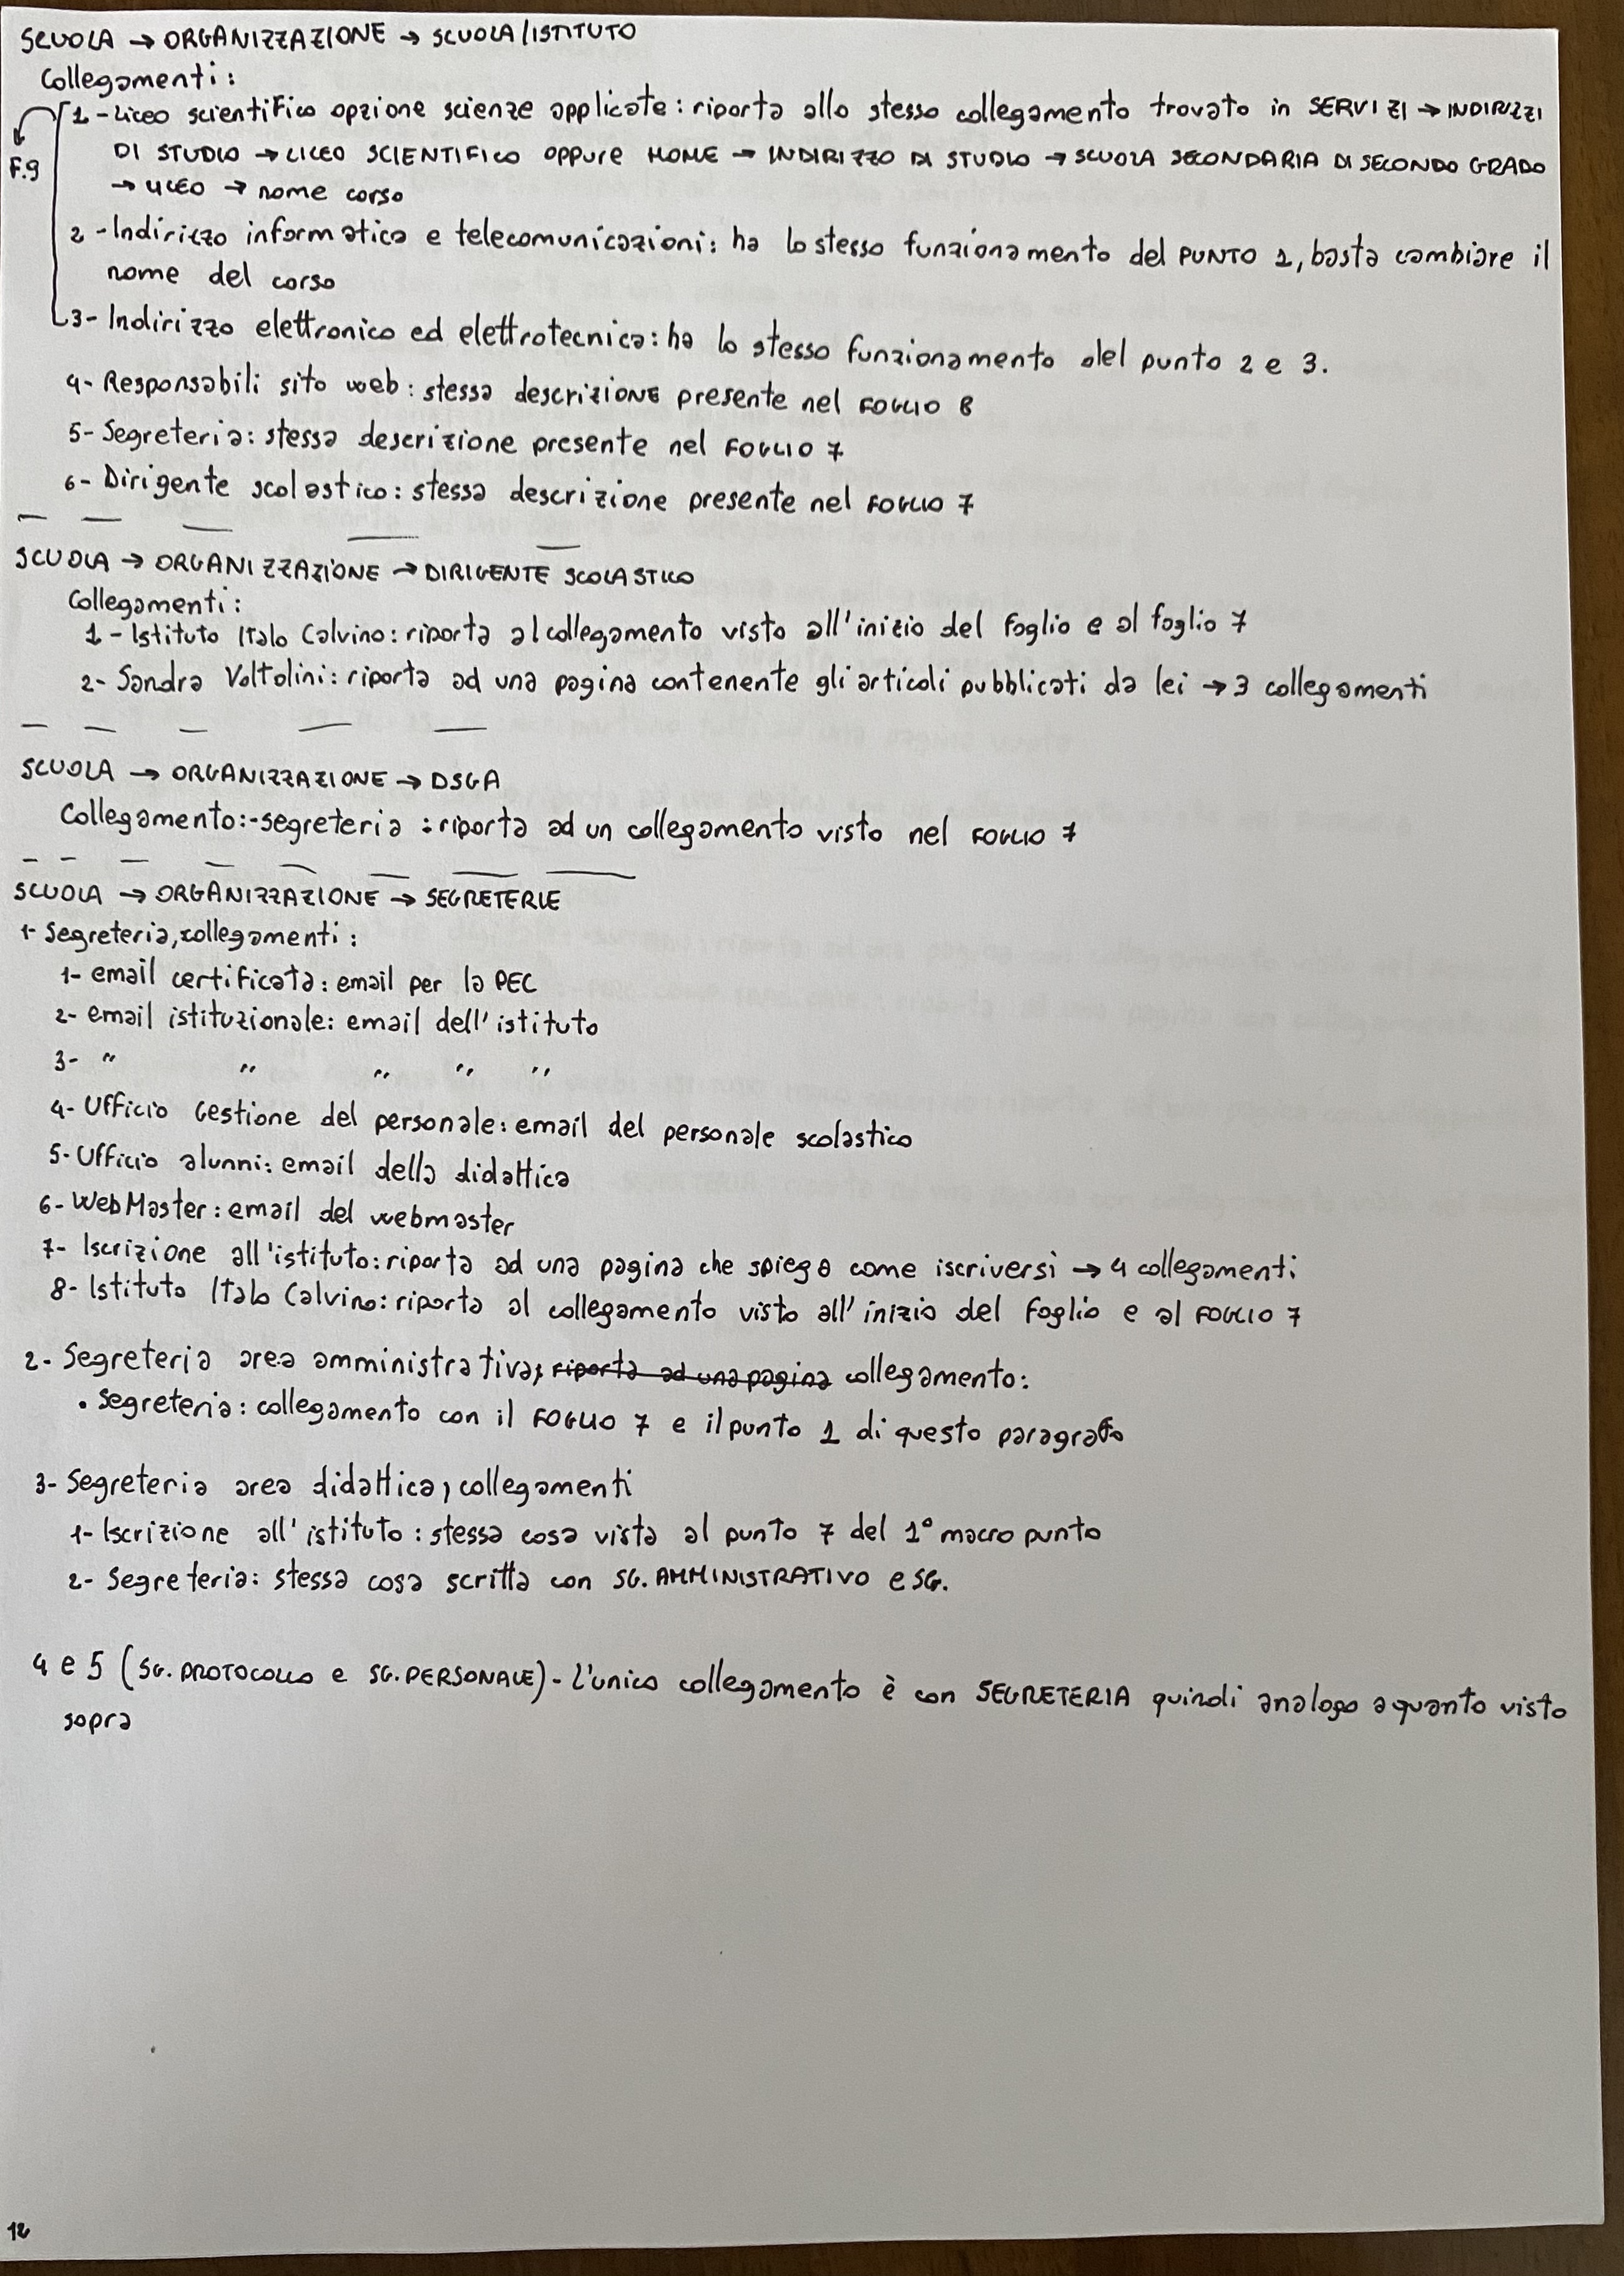 SCUOLA → ORGANIZZAZIONE → SCUOLA/ISTITUTO
Collegamenti:
1-Liceo scientifico opzione scienze applicate: riporta allo stesso collegamento trovato in SERVIZI → INDIRIZZI
F.9
DI STUDIO → LICEO SCIENTIFICO OPPURE HOME → INDIRIZZO DI STUDIO → SCUOLA SECONDARIA DI SECONDO GRADO
→ LICEO → nome corso
2-Indirizzo informatica e telecomunicazioni: ha lo stesso funzionamento del PUNTO 1, basta cambiare il
nome del corso
3-Indirizzo elettronico ed elettrotecnica: ha lo stesso funzionamento del punto 2 e 3.
4-Responsabili sito web: stessa descrizione presente nel FOGLIO 8
5-Segreteria: stessa descrizione presente nel FOGLIO 7
6-Dirigente scolastico: stessa descrizione presente nel FOGLIO 7
SCUOLA → ORGANIZZAZIONE → DIRIGENTE SCOLASTICO
Collegamenti:
1-Istituto Italo Calvino: riporta al collegamento visto all'inizio del foglio e al foglio 7
2-Sandra Voltolini: riporta ad una pagina contenente gli articoli pubblicati da lei → 3 collegamenti
SCUOLA → ORGANIZZAZIONE → DSGA
Collegamento:-segreteria: riporta ad un collegamento visto nel FOGLIO 7
SCUOLA → ORGANIZZAZIONE → SEGRETERIE
1-Segreteria, collegamenti:
1-email certificata: email per la PEC
2-email istituzionale: email dell'istituto
3- " " " " "
4-Ufficio Gestione del personale: email del personale scolastico
5-Ufficio alunni: email della didattica
6-WebMaster: email del webmaster
7-Iscrizione all'istituto: riporta ad una pagina che spiega come iscriversi → 4 collegamenti
8-Istituto Italo Calvino: riporta al collegamento visto all'inizio del foglio e al FOGLIO 7
2-Segreteria area amministrativa; riporta ad una pagina collegamento:
• Segreteria: collegamento con il FOGLIO 7 e il punto 1 di questo paragrafo
3-Segreteria area didattica, collegamenti
1-Iscrizione all'istituto: stessa cosa vista al punto 7 del 1° macro punto
2-Segreteria: stessa cosa scritta con SG. AMMINISTRATIVO e SG.
4 e 5 (SG. PROTOCOLLO e SG. PERSONALE)-L'unico collegamento è con SEGRETERIA quindi analogo a quanto visto
sopra
12